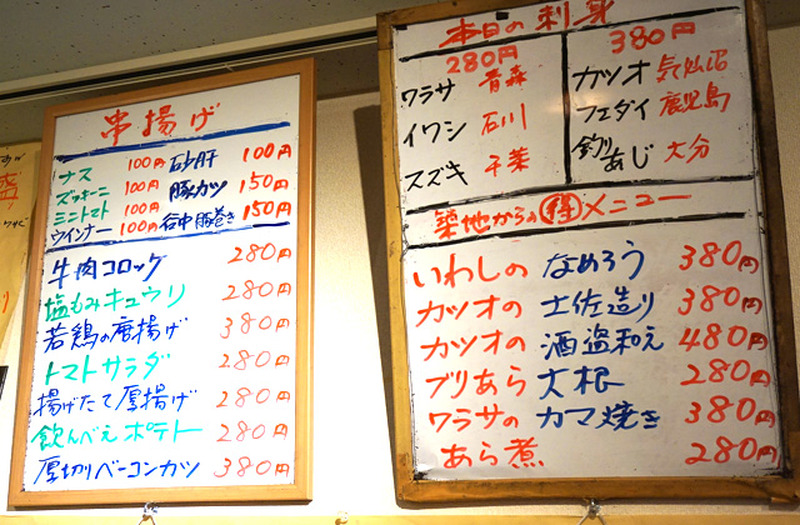 串揚げ
ナス 100円 砂肝 100円
ズッキーニ 100円 豚カツ 150円
ミニトマト 100円
ウインナー 100円 谷中豚巻き 150円
牛肉コロッケ 280円
塩もみキュウリ 280円
若鶏の唐揚げ 380円
トマトサラダ 280円
揚げたて厚揚げ 280円
飲んべえポテト 280円
厚切りベーコンカツ 380円
本日の刺身
280円
ワラサ 青森
イワシ 石川
スズキ 千葉
380円
カツオ 気仙沼
フエダイ 鹿児島
釣りあじ 大分
築地からの得メニュー
いわしの なめろう 380円
カツオの 土佐造り 380円
カツオの 酒盗和え 480円
ブリあら 大根 280円
ワラサの カマ焼き 380円
あら煮 280円